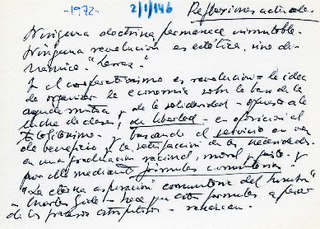 -1972- 2/1/146 Reflexiones actuales.
Ninguna doctrina permanece inmutable.
Ninguna revolución es estática, sino di-
námica. "
Y el cooperativismo es revolución = la idea
de organizar la economía sobre la base de la
ayuda mutua y de la solidaridad - opuesto a la
lucha de clases, de libertad - en oposición al
totalitarismo - y buscando el servicio en vez
de beneficio y la satisfacción de las necesidades
en una producción racional, moral y justa - y
por ello mediante fórmulas comunitarias
"La eterna aspiración comunitaria del hombre"
- Charles Gide - hace que estas fórmulas a pesar
de los fracasos - renazcan.